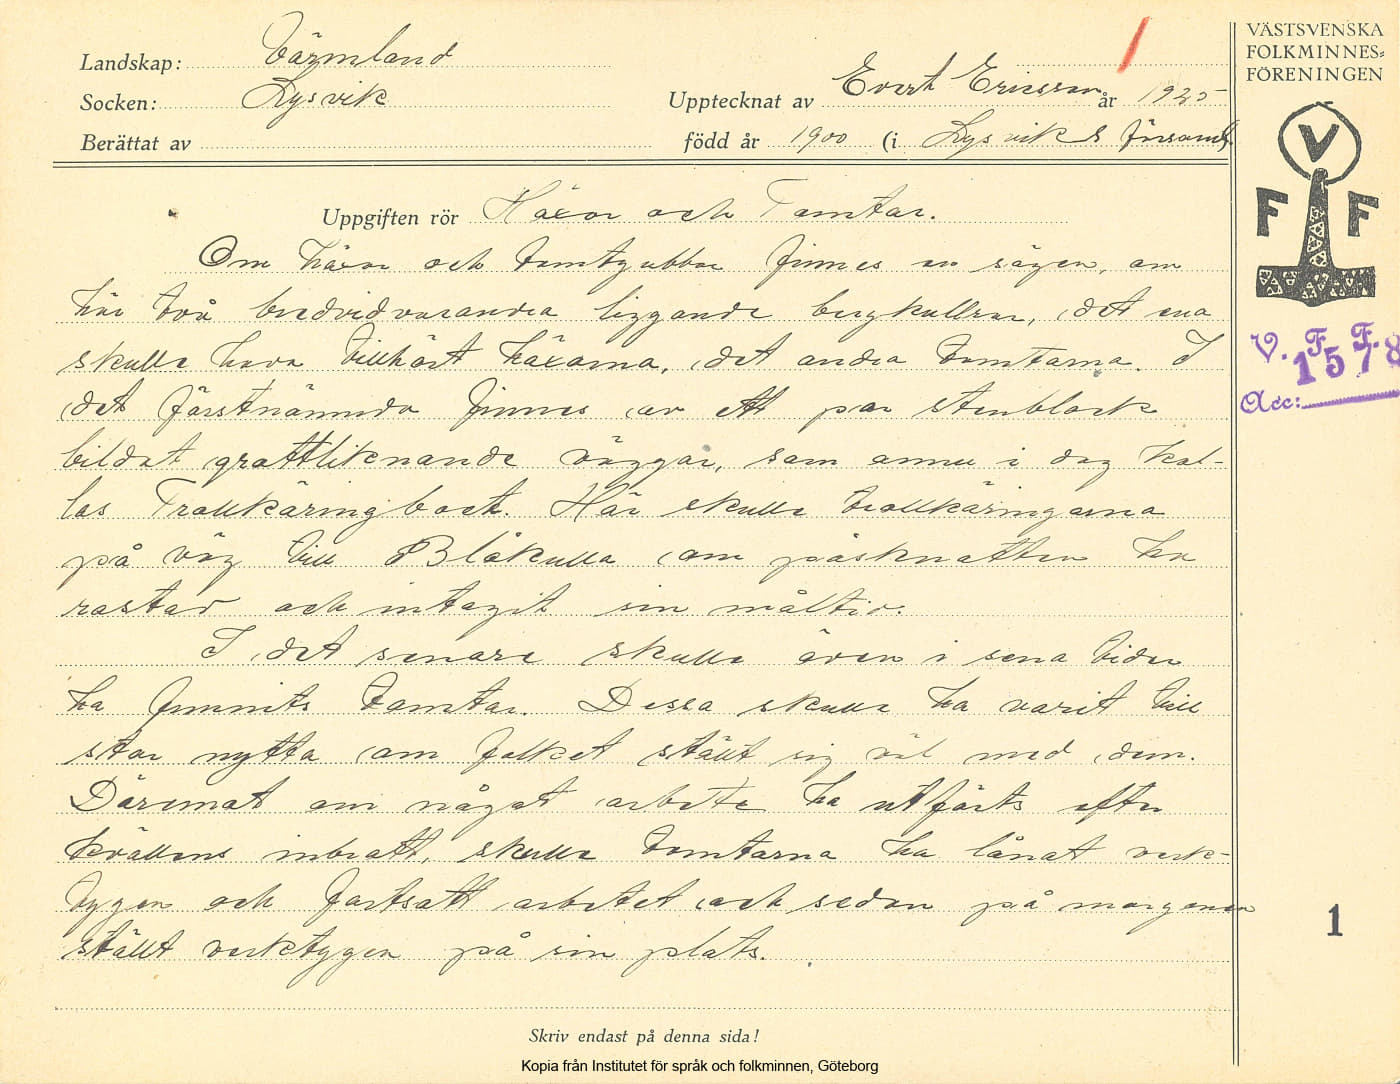 Landskap: Värmland
Socken: Lysvik
Upptecknat av Evert Ericsson år 1925
Berättat av
född år 1900 (i Lysviks församl.
VÄSTSVENSKA
FOLKMINNES=
FÖRENINGEN
V
F F
V. F. F.
1578
Acc:
Uppgiften rör Häxor och Tomtar.
Om häxor och tomtgubbar finnes en sägen, om
här två bredvidvarandra liggande bergkullrar, det ena
skulle hava tillhört häxorna, det andra tomtarna. I
det förstnämnda finnes av ett par stenblock
bildat grottliknande väggar, som ännu i dag kal-
las Trollkäringboet. Här skulle trollkäringarna
på väg till Blåkulla om påsknatten ha
rastad och intagit sin måltid.
I det senare skulle även i sena tider
ha funnits tomtar. Dessa skulle ha varit till
stor nytta om folket ställt sig väl med dem.
Däremot om något arbete ha utförts efter
kvällens inbrott, skulle tomtarna ha lånat verk-
tygen och fortsatt arbetet och sedan på morgonen
ställt verktygen på sin plats.
1
Skriv endast på denna sida!
Kopia från Institutet för språk och folkminnen, Göteborg